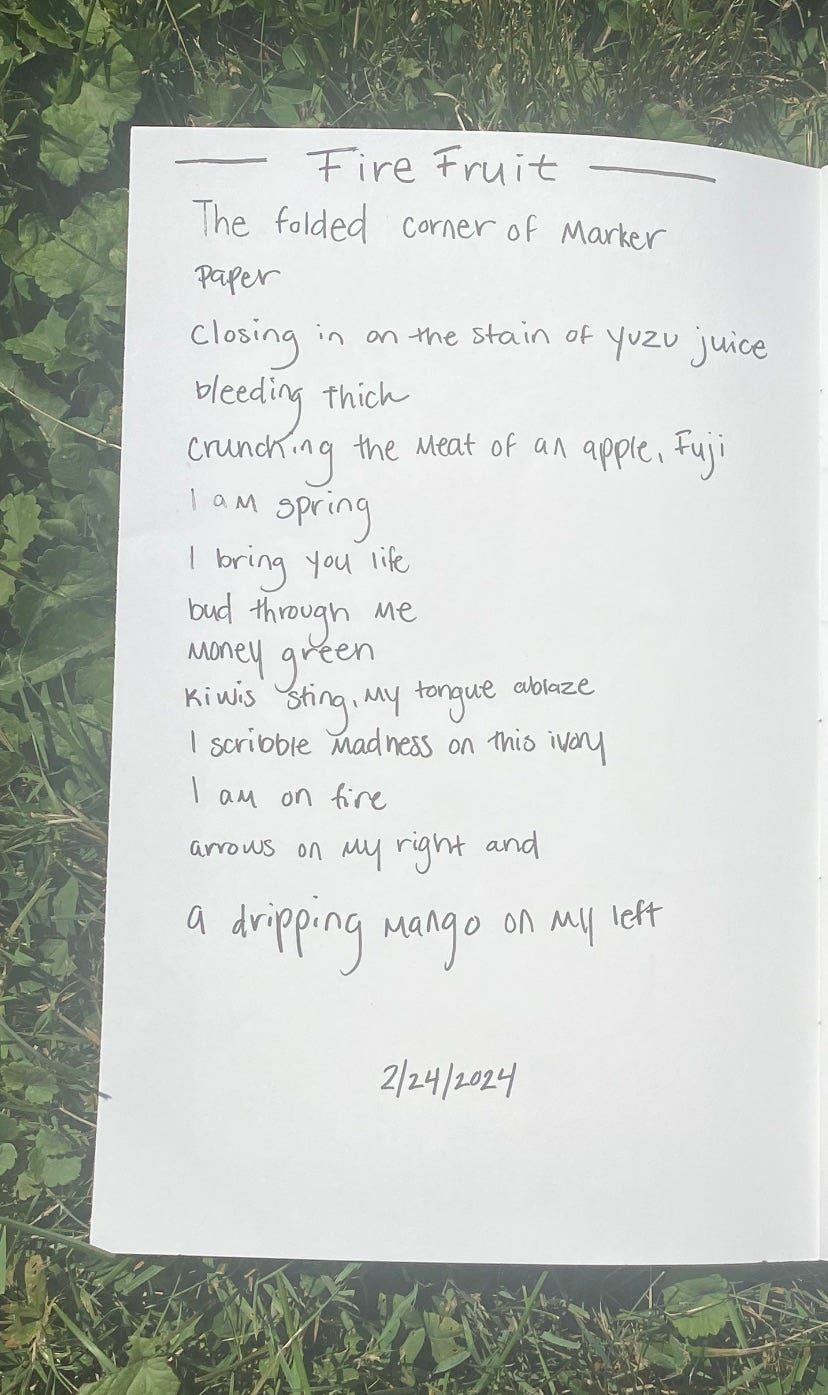 — Fire Fruit —
The folded corner of Marker
paper
closing in on the stain of yuzu juice
bleeding thick
crunching the meat of an apple, Fuji
I am spring
I bring you life
bud through me
money green
kiwis sting, my tongue ablaze
I scribble madness on this ivory
I am on fire
arrows on my right and
a dripping mango on my left
2/24/2024